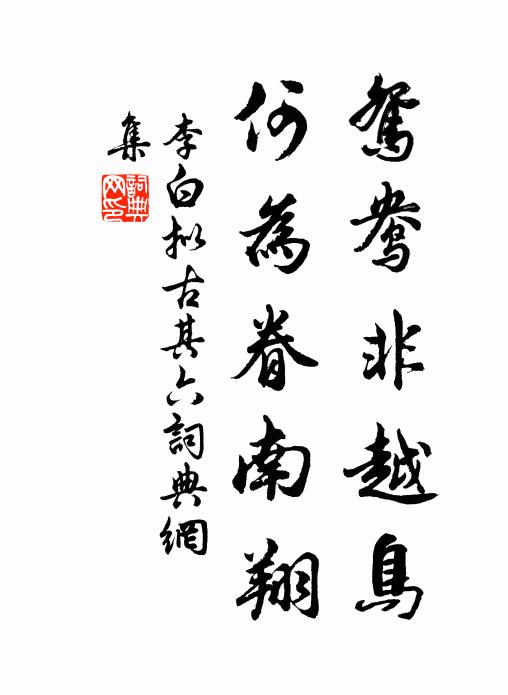 鴛鴦非越鳥
何為眷南翔
李白拟古其六詞典網
集
詞典
网印